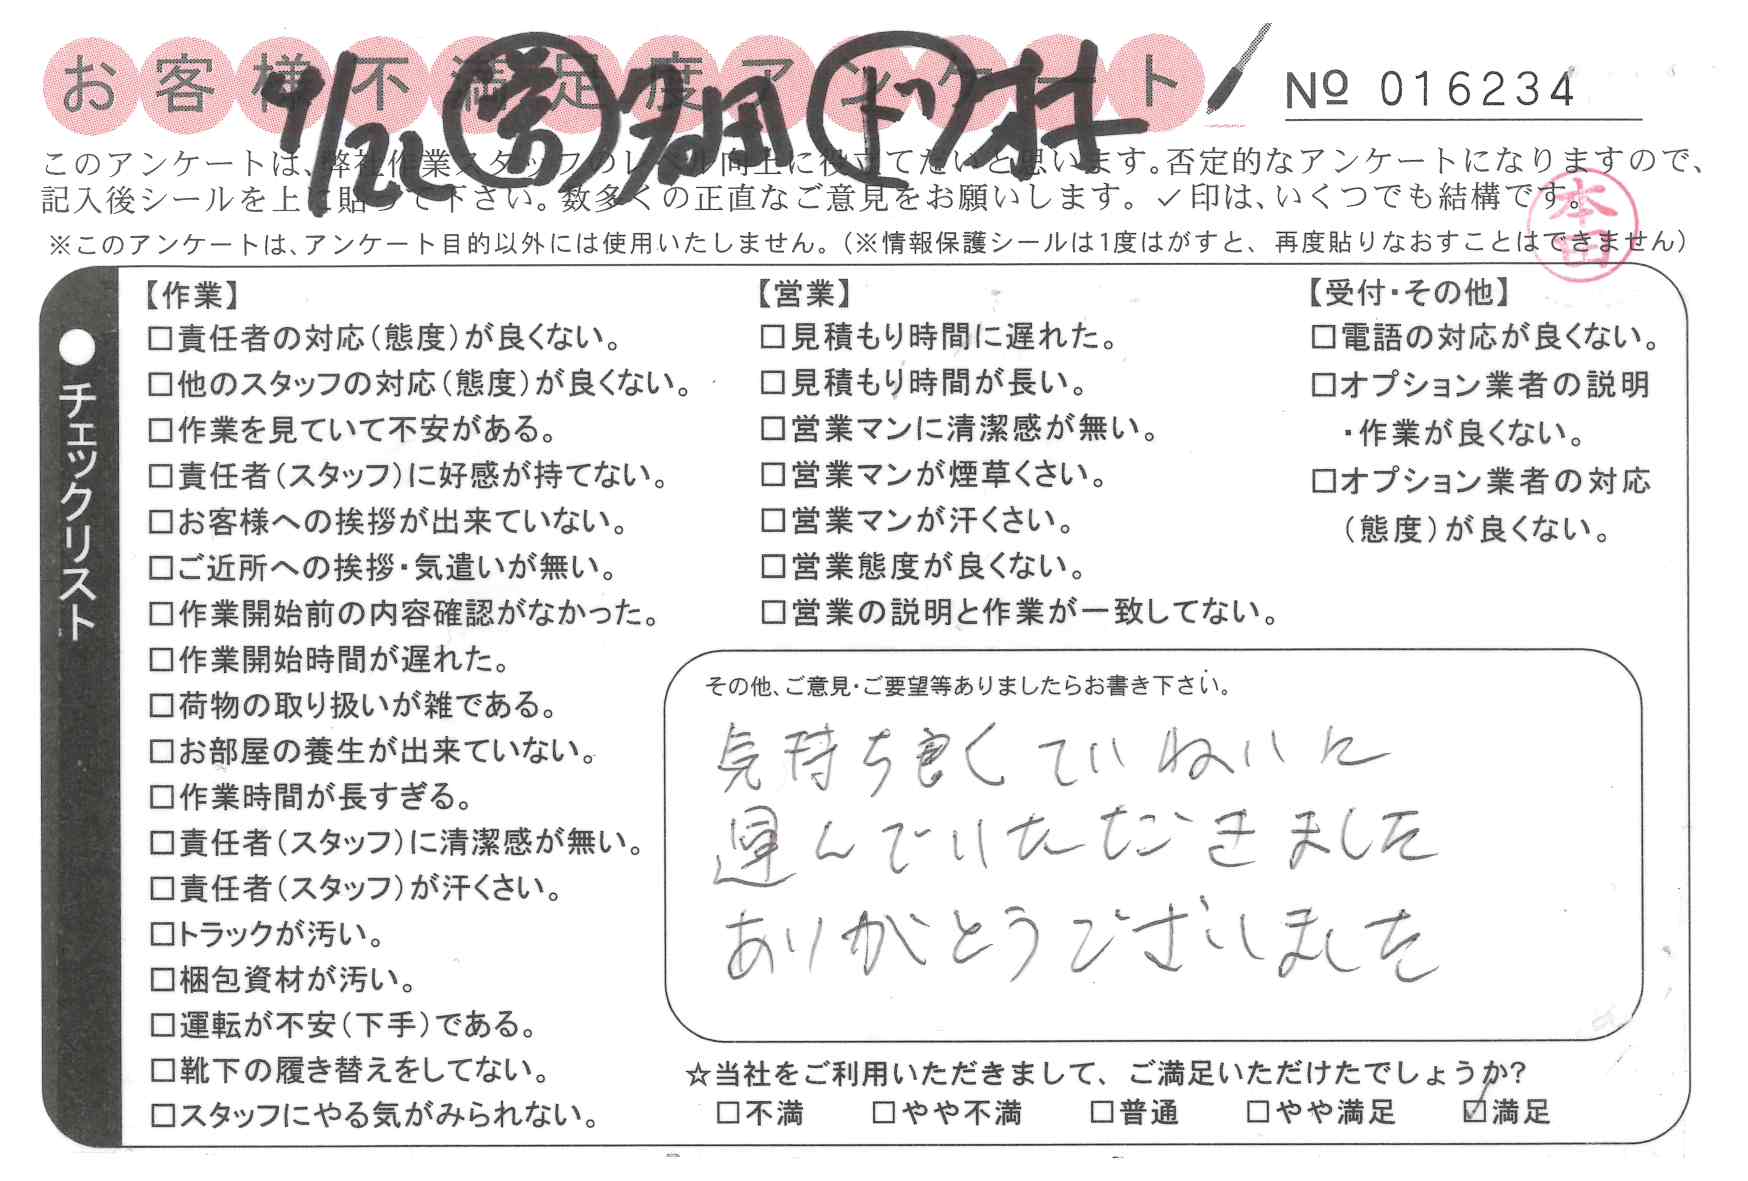 お客様不満足度アンケート
Nº 016234
このアンケートは、弊社作業スタッフのレベル向上に役立てたいと思います。否定的なアンケートになりますので、
記入後シールを上に貼って下さい。数多くの正直なご意見をお願いします。✓印は、いくつでも結構です。
※このアンケートは、アンケート目的以外には使用いたしません。（※情報保護シールは1度はがすと、再度貼りなおすことはできません）
本田
●チェックリスト
【作業】
□責任者の対応（態度）が良くない。
□他のスタッフの対応（態度）が良くない。
□作業を見ていて不安がある。
□責任者（スタッフ）に好感が持てない。
□お客様への挨拶が出来ていない。
□ご近所への挨拶・気遣いが無い。
□作業開始前の内容確認がなかった。
□作業開始時間が遅れた。
□荷物の取り扱いが雑である。
□お部屋の養生が出来ていない。
□作業時間が長すぎる。
□責任者（スタッフ）に清潔感が無い。
□責任者（スタッフ）が汗くさい。
□トラックが汚い。
□梱包資材が汚い。
□運転が不安（下手）である。
□靴下の履き替えをしてない。
□スタッフにやる気がみられない。
【営業】
□見積もり時間に遅れた。
□見積もり時間が長い。
□営業マンに清潔感が無い。
□営業マンが煙草くさい。
□営業マンが汗くさい。
□営業態度が良くない。
□営業の説明と作業が一致してない。
【受付・その他】
□電話の対応が良くない。
□オプション業者の説明
・作業が良くない。
□オプション業者の対応
（態度）が良くない。
その他、ご意見・ご要望等ありましたらお書き下さい。
気持ち良くていねいに
運んでいただきました
ありがとうございました
☆当社をご利用いただきまして、ご満足いただけたでしょうか?
□不満 □やや不満 □普通 □やや満足 ☑満足